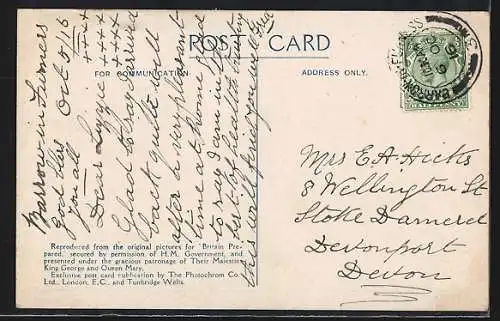 POST CARD
FOR COMMUNICATION
ADDRESS ONLY.
Barrow in Furness
Oct 5/16
God bless you all
++++
++++
Dear Lizzie
Glad to say arrived
back quite well
after a very pleasant
time at home. Glad
to say I am in the
best of health trusting
this will find you well Fred
BARROW-IN-FURNESS
6 OC
16
HALFPENNY
Mrs E.A. Hicks
8 Wellington St
Stoke Damerel
Devonport
Devon
Reproduced from the original pictures for 'Britain Pre-
pared,' secured by permission of H.M. Government, and
presented under the gracious patronage of Their Majesties
King George and Queen Mary.
Exclusive post card publication by The Photochrom Co.
Ltd., London, E.C., and Tunbridge Wells.